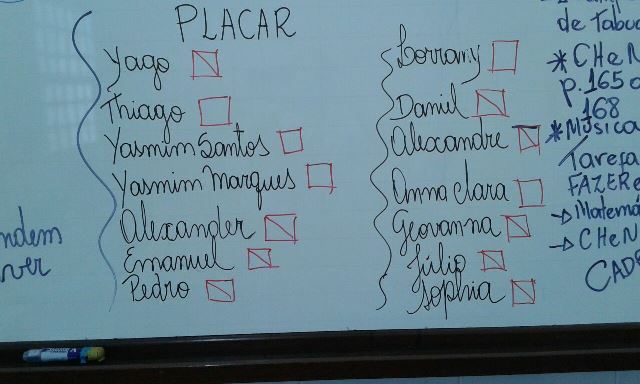 PLACAR
Yago
Thiago
Yasmim Santos
Yasmim Marques
Alexander
Emanuel
Pedro
Lorrany
Daniel
Alexandre
Anna clara
Geovanna
Júlio
Sophia
de Tabu
* CHeN
p. 165 a
168
* Música
Tarefa
FAZERe
→ Matemá
→ CHeN
CADe
ndem
ver